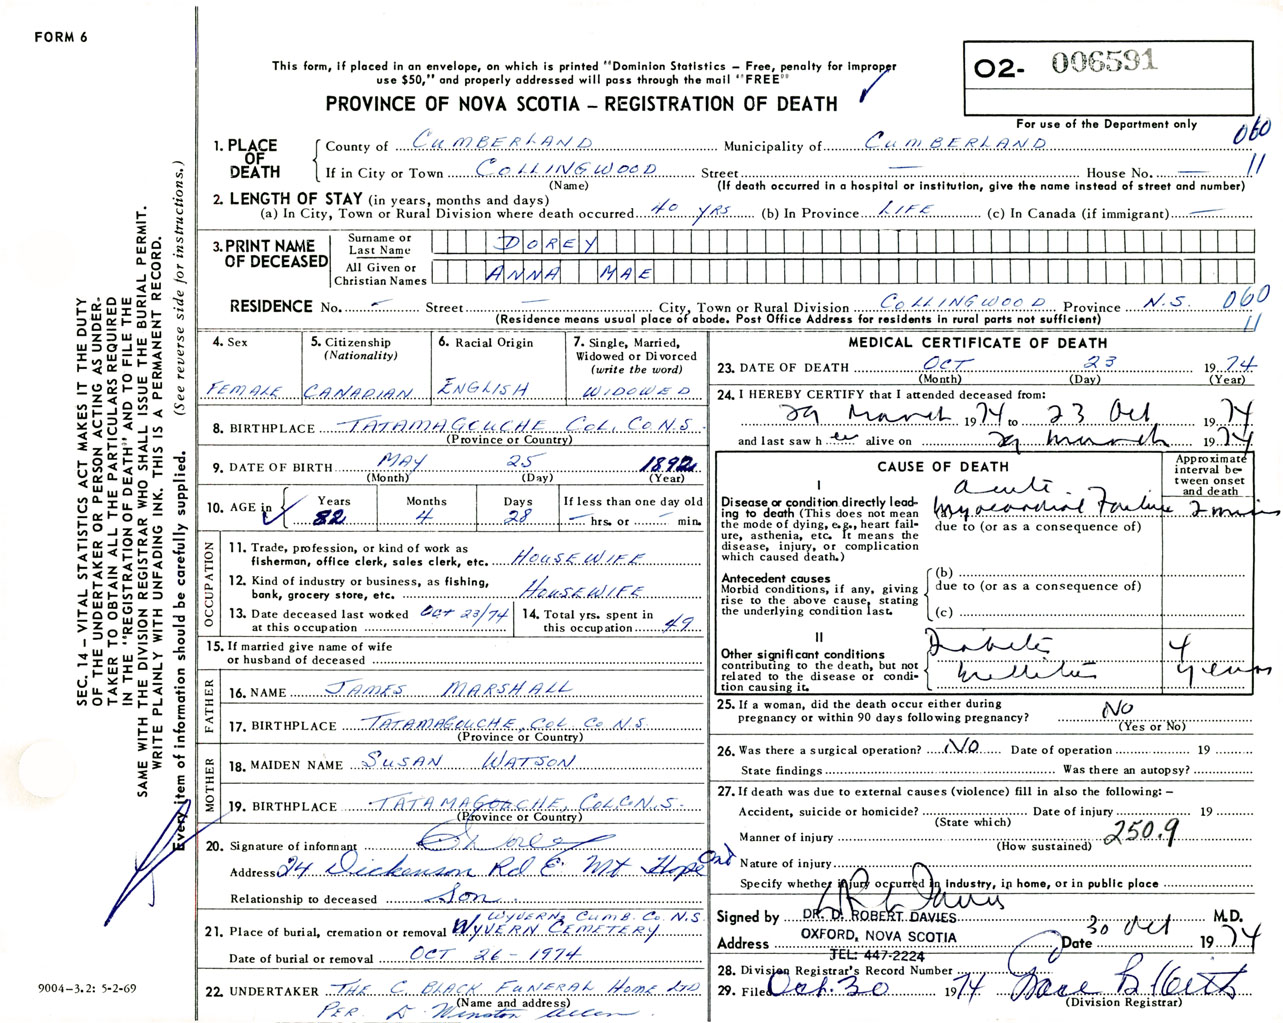 FORM 6
This form, if placed in an envelope, on which is printed "Dominion Statistics – Free, penalty for improper
use $50," and properly addressed will pass through the mail "FREE"
PROVINCE OF NOVA SCOTIA – REGISTRATION OF DEATH
02- 006591
For use of the Department only
060
11
1. PLACE OF DEATH
County of CUMBERLAND Municipality of CUMBERLAND
If in City or Town COLLINGWOOD Street — House No. —
(Name) (If death occurred in a hospital or institution, give the name instead of street and number)
2. LENGTH OF STAY (in years, months and days)
(a) In City, Town or Rural Division where death occurred 40 YRS (b) In Province LIFE (c) In Canada (if immigrant) —
3. PRINT NAME OF DECEASED
Surname or Last Name DOREY
All Given or Christian Names ANNA MAE
RESIDENCE No. – Street — City, Town or Rural Division COLLINGWOOD Province N.S. 060
(Residence means usual place of abode. Post Office Address for residents in rural parts not sufficient) 11
4. Sex
FEMALE
5. Citizenship
(Nationality)
CANADIAN
6. Racial Origin
ENGLISH
7. Single, Married,
Widowed or Divorced
(write the word)
WIDOWED
8. BIRTHPLACE TATAMAGOUCHE COL. CO N.S.
(Province or Country)
9. DATE OF BIRTH MAY 25 1892
(Month) (Day) (Year)
10. AGE in
Years Months Days If less than one day old
82 4 28 — hrs. or — min.
OCCUPATION
11. Trade, profession, or kind of work as
fisherman, office clerk, sales clerk, etc. HOUSEWIFE
12. Kind of industry or business, as fishing,
bank, grocery store, etc. HOUSEWIFE
13. Date deceased last worked OCT 23/74
at this occupation
14. Total yrs. spent in
this occupation 49
15. If married give name of wife
or husband of deceased
FATHER
16. NAME JAMES MARSHALL
17. BIRTHPLACE TATAMAGOUCHE, COL. CO N.S.
(Province or Country)
MOTHER
18. MAIDEN NAME SUSAN WATSON
19. BIRTHPLACE TATAMAGOUCHE, COL CO N.S.
(Province or Country)
20. Signature of informant
Address 24 Dickenson Rd E Mt Hope Ont
Relationship to deceased Son
WYVERN, CUMB. CO. N.S.
21. Place of burial, cremation or removal WYVERN CEMETERY
Date of burial or removal OCT 26 - 1974
22. UNDERTAKER THE C. BLACK FUNERAL HOME LTD
(Name and address)
PER. D. Winston Allen
MEDICAL CERTIFICATE OF DEATH
23. DATE OF DEATH OCT 23 1974
(Month) (Day) (Year)
24. I HEREBY CERTIFY that I attended deceased from:
29 March 1974 to 23 Oct 1974
and last saw her alive on 29 March 1974
CAUSE OF DEATH
Approximate
interval be-
tween onset
and death
I
Disease or condition directly lead-
ing to death (This does not mean
the mode of dying, e.g., heart fail-
ure, asthenia, etc. It means the
disease, injury, or complication
which caused death.)
acute
Myocardial Failure 2 mins
due to (or as a consequence of)
Antecedent causes
Morbid conditions, if any, giving
rise to the above cause, stating
the underlying condition last.
(b)
due to (or as a consequence of)
(c)
II
Other significant conditions
contributing to the death, but not
related to the disease or condi-
tion causing it.
Diabetes 4
Mellitus years
25. If a woman, did the death occur either during
pregnancy or within 90 days following pregnancy? NO
(Yes or No)
26. Was there a surgical operation? NO Date of operation 19
State findings Was there an autopsy?
27. If death was due to external causes (violence) fill in also the following: –
Accident, suicide or homicide? Date of injury 19
(State which)
Manner of injury 250.9
(How sustained)
Nature of injury
Specify whether injury occurred in industry, in home, or in public place
Signed by DR. D. ROBERT DAVIES M.D.
Address OXFORD, NOVA SCOTIA Date 30 Oct 1974
TEL: 447-2224
28. Division Registrar's Record Number
29. Filed Oct. 30 1974
(Division Registrar)
SEC. 14 – VITAL STATISTICS ACT MAKES IT THE DUTY
OF THE UNDERTAKER OR PERSON ACTING AS UNDER-
TAKER TO OBTAIN ALL THE PARTICULARS REQUIRED
IN THE "REGISTRATION OF DEATH" AND TO FILE THE
SAME WITH THE DIVISION REGISTRAR WHO SHALL ISSUE THE BURIAL PERMIT.
WRITE PLAINLY WITH UNFADING INK. THIS IS A PERMANENT RECORD.
Every item of information should be carefully supplied. (See reverse side for instructions.)
9004-3.2: 5-2-69